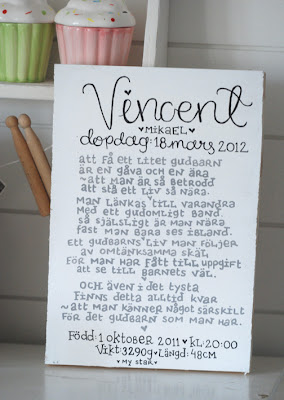 Vincent
♥MikaEL♥
dopdag: 18 mars 2012
att Få ett Litet gudBarn
är en gåva och en ära
~att man är så Betrodd
att stå ett Liv så nära.
Man Länkas till varandra
Med ett gudomligt Band.
så själsligt är man nära
fast man Bara ses iBland.
Ett gudBarns Liv man Följer
av omtänksamma skäl,
För man har Fått till uppgift
att se till Barnets väl.
och även i det tysta
Finns detta alltid kvar
~att man känner något särskilt
För det gudBarn som man har.
Född: 1 oktober 2011 ♥ kl: 20:00
Vikt: 3290g ♥ Längd: 48cm
♥ my star ♥